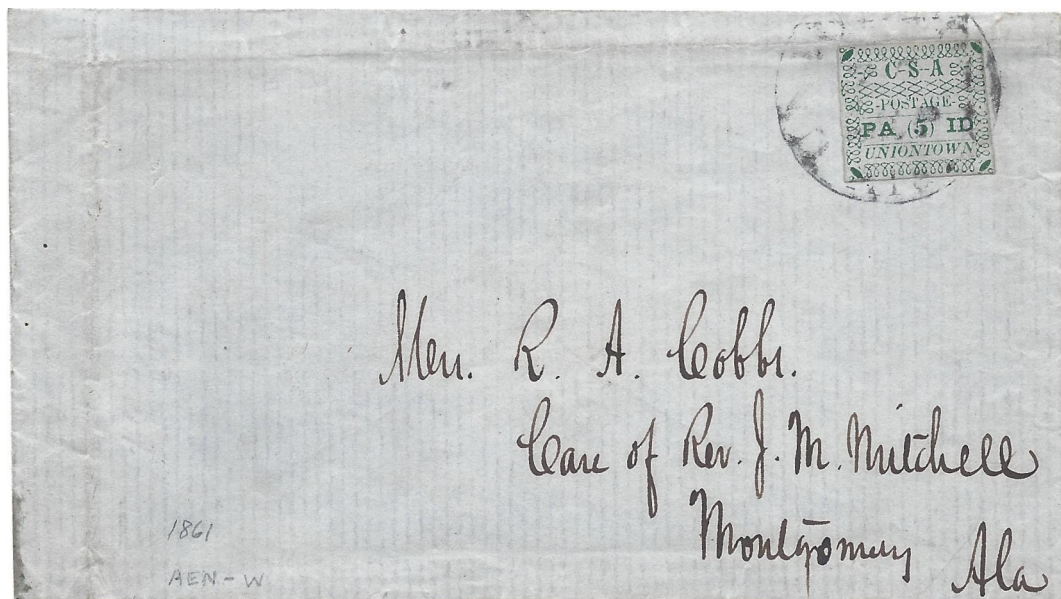 C-S-A
POSTAGE
PA (5) ID
UNIONTOWN
Mrs. R. A. Cobbs.
Care of Rev. J. M. Mitchell
Montgomery
Ala
1861
AEN-W